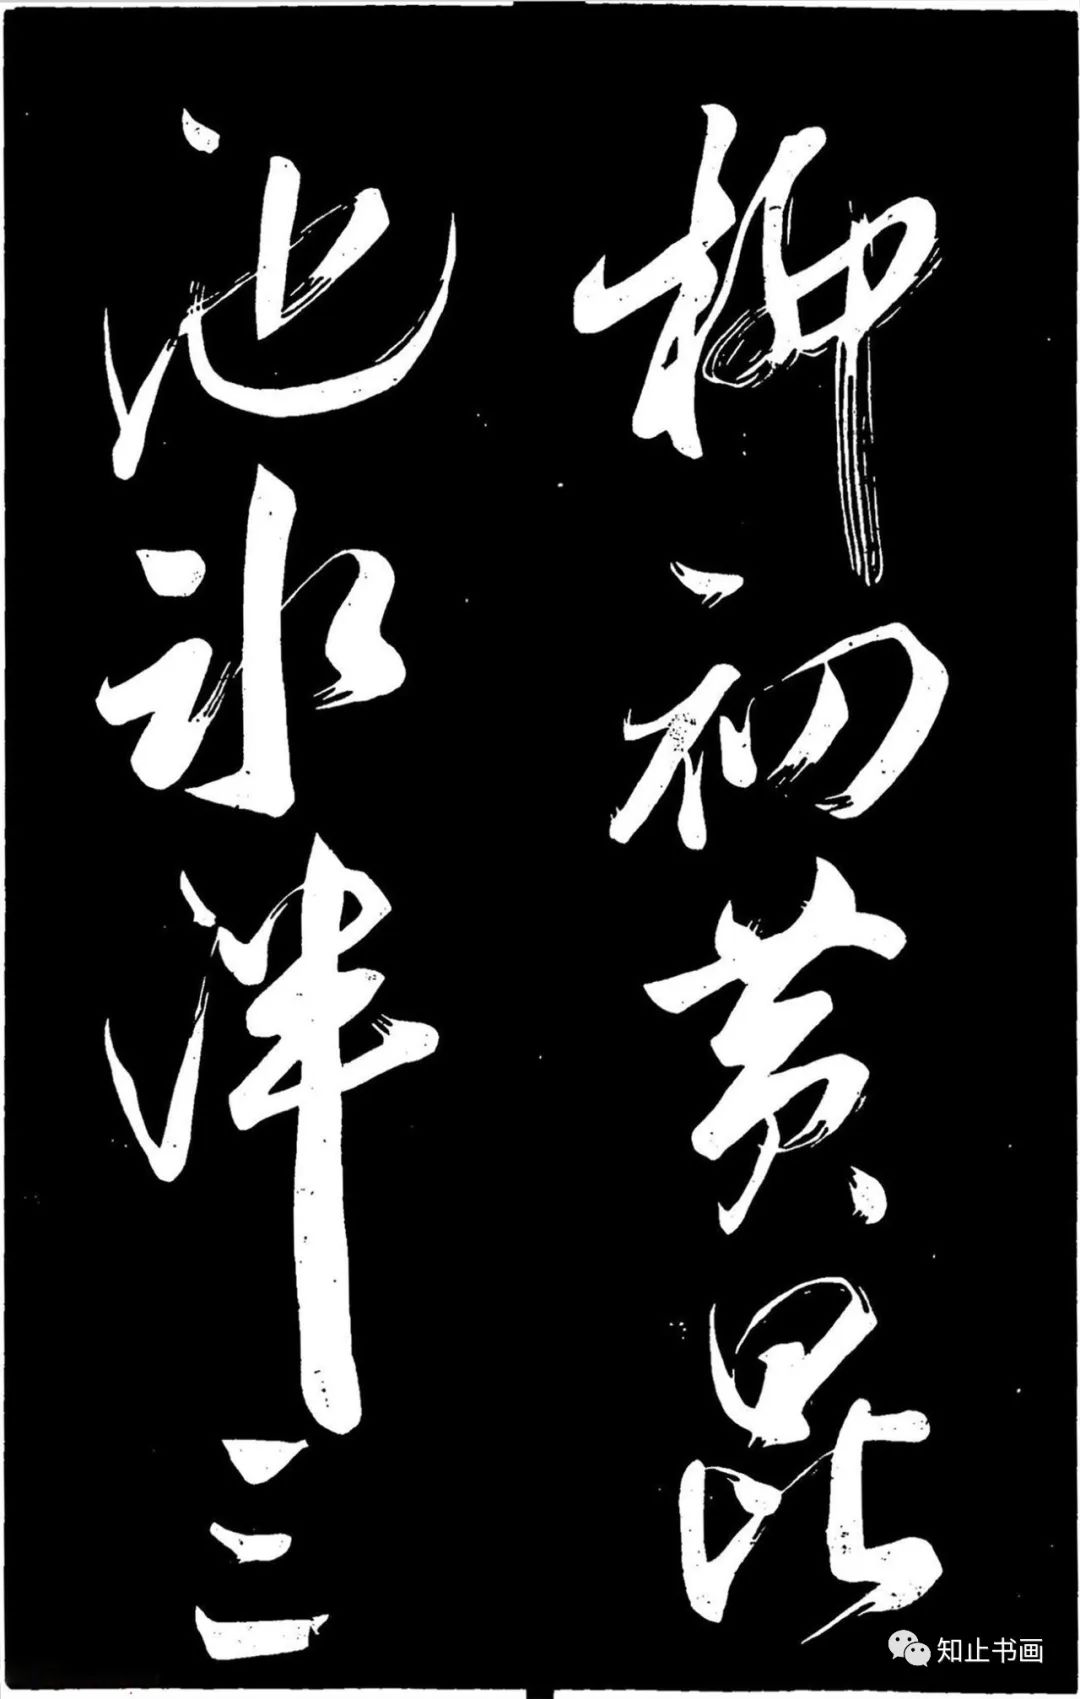 柳初黄昆
池冰泮三
知止书画